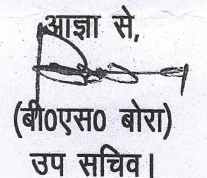 आज्ञा से,
(बी0एस0 बोरा)
उप सचिव।